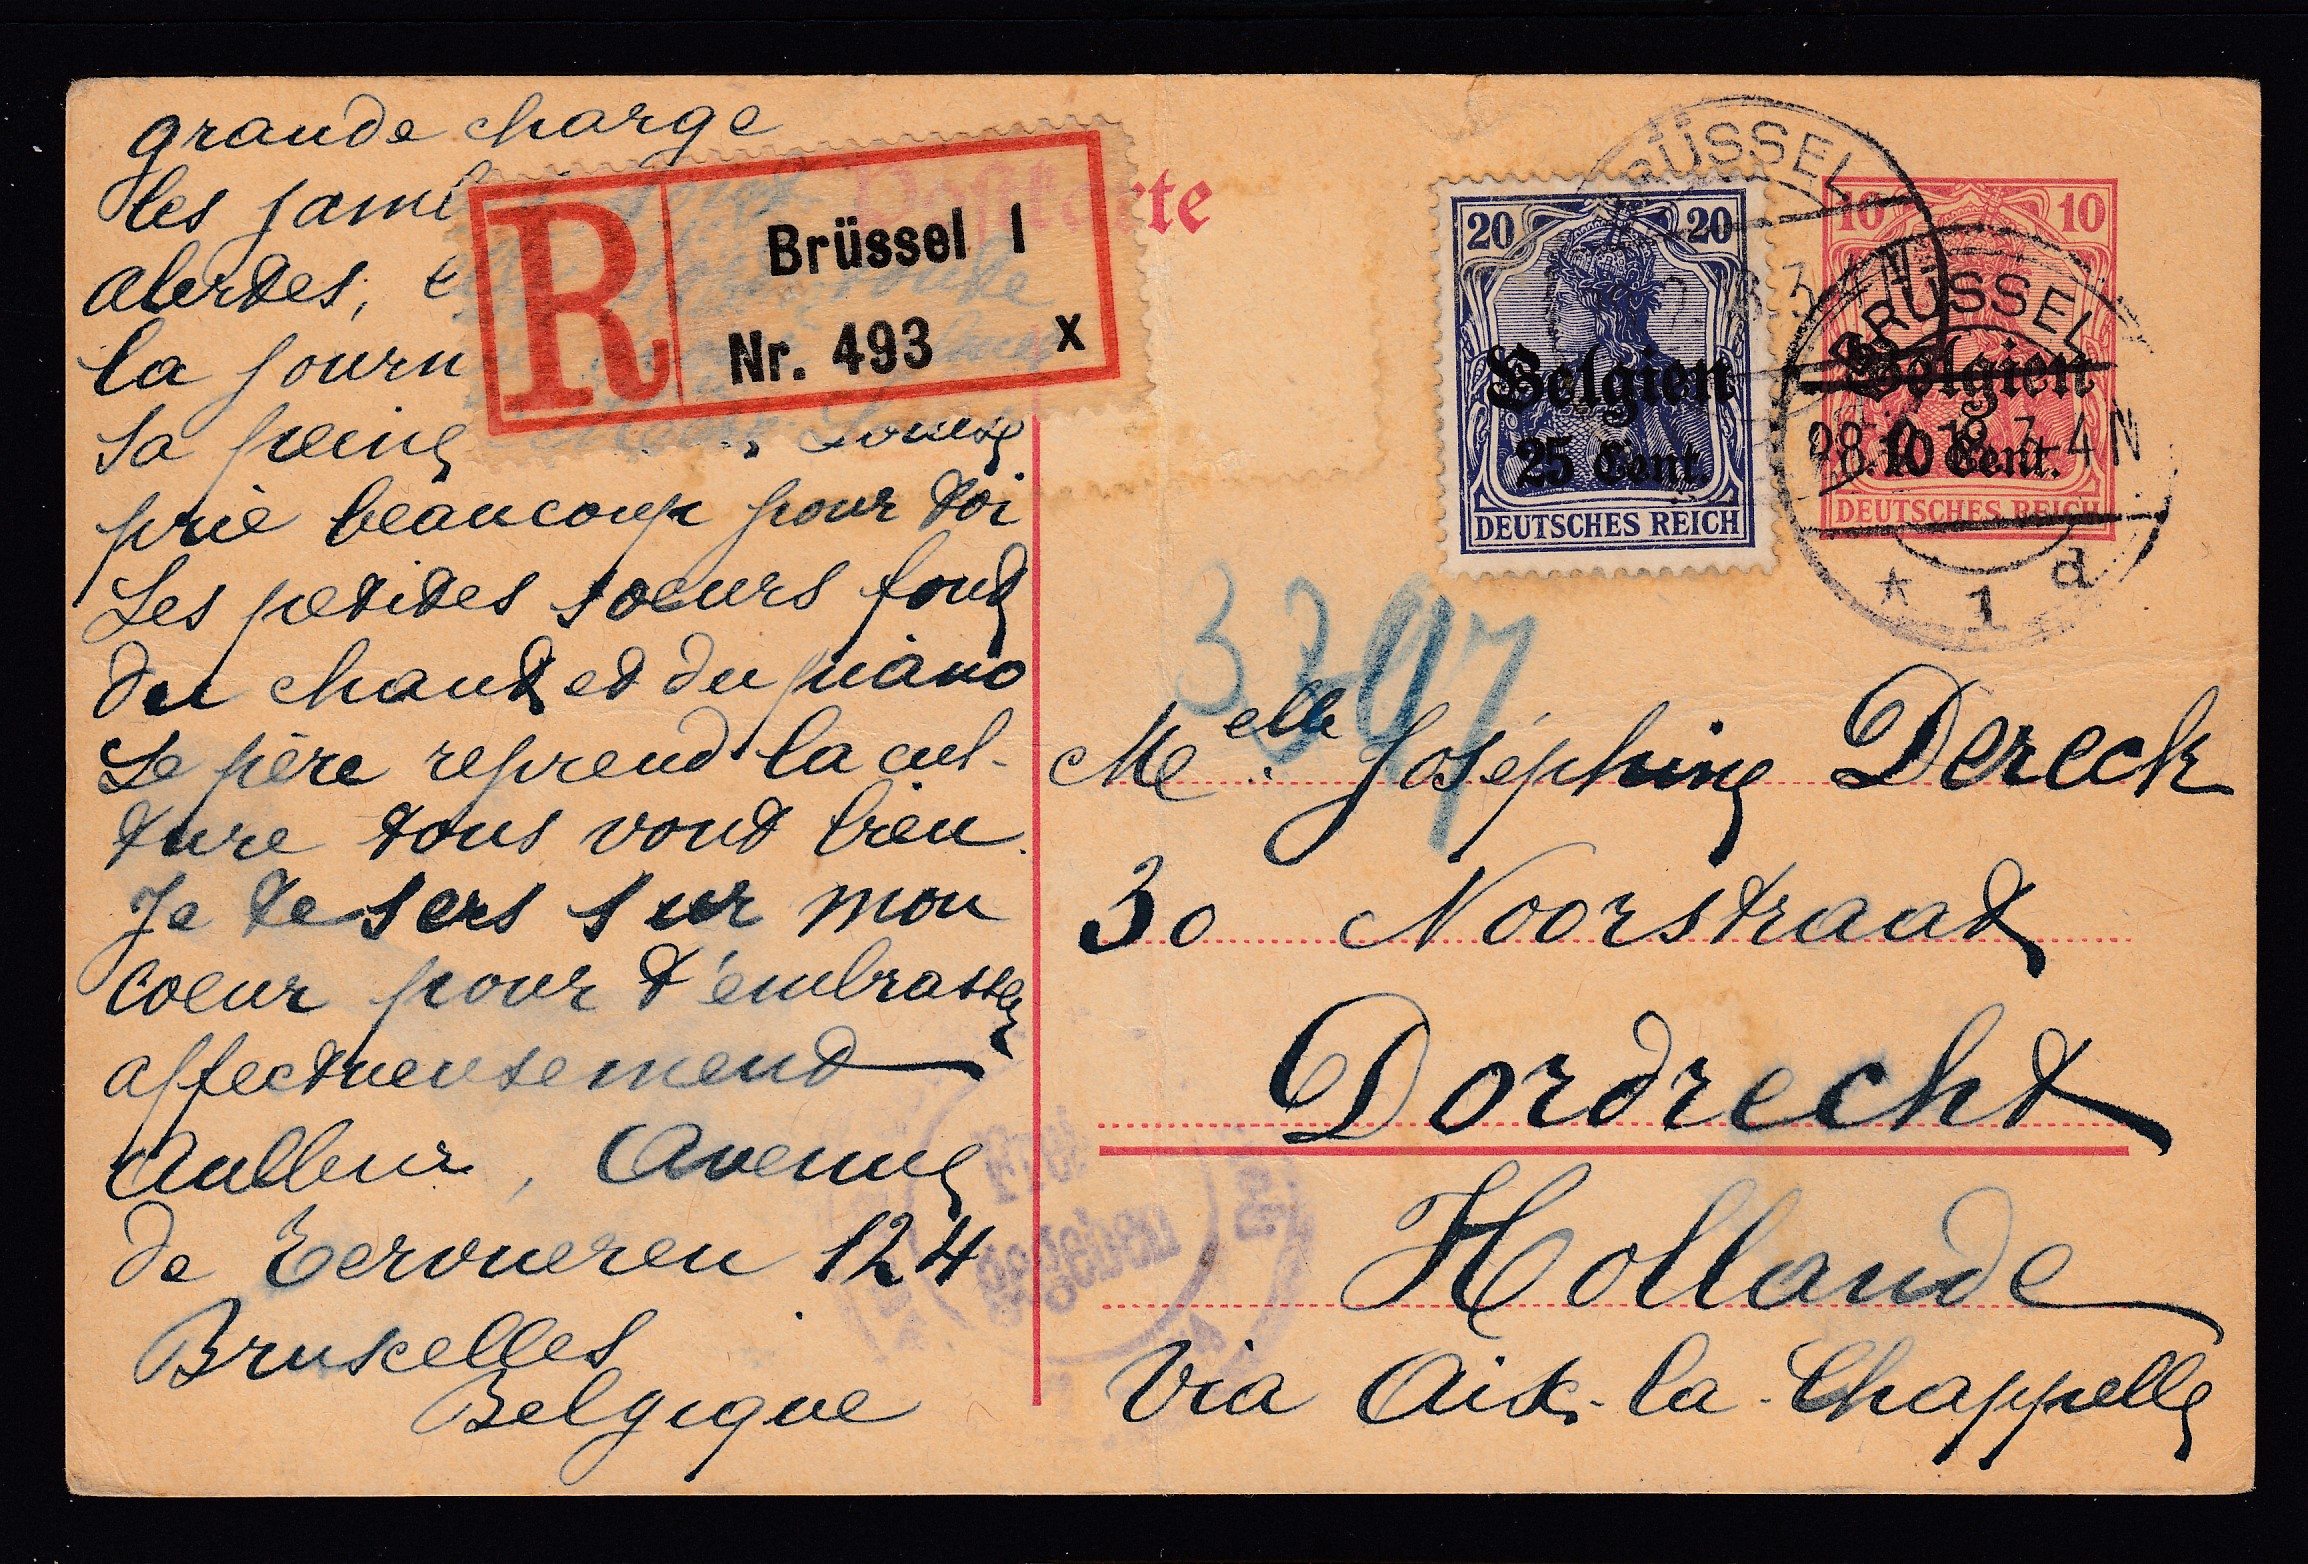 grande charge
les
alertes,
la journ
sa peine Louise
prie beaucoup pour toi
Les petites soeurs font
du chant et du piano
Le père reprend la cul-
ture tous vont bien.
Je te sers sur mon
coeur pour t'embrasser
affectueusement
Avenue
de Tervueren 124
Bruxelles
Belgique
R
Brüssel 1
Nr. 493 x
Postkarte
20 20
Belgien
25 Cent.
DEUTSCHES REICH
BRÜSSEL
10 10
Belgien
10 Cent.
DEUTSCHES REICH
BRÜSSEL
3-4N
* 1 d
Melle. Joséphine Dereck
30 Noorstraat
Dordrecht
Hollande
Via Aix-la-Chappelle